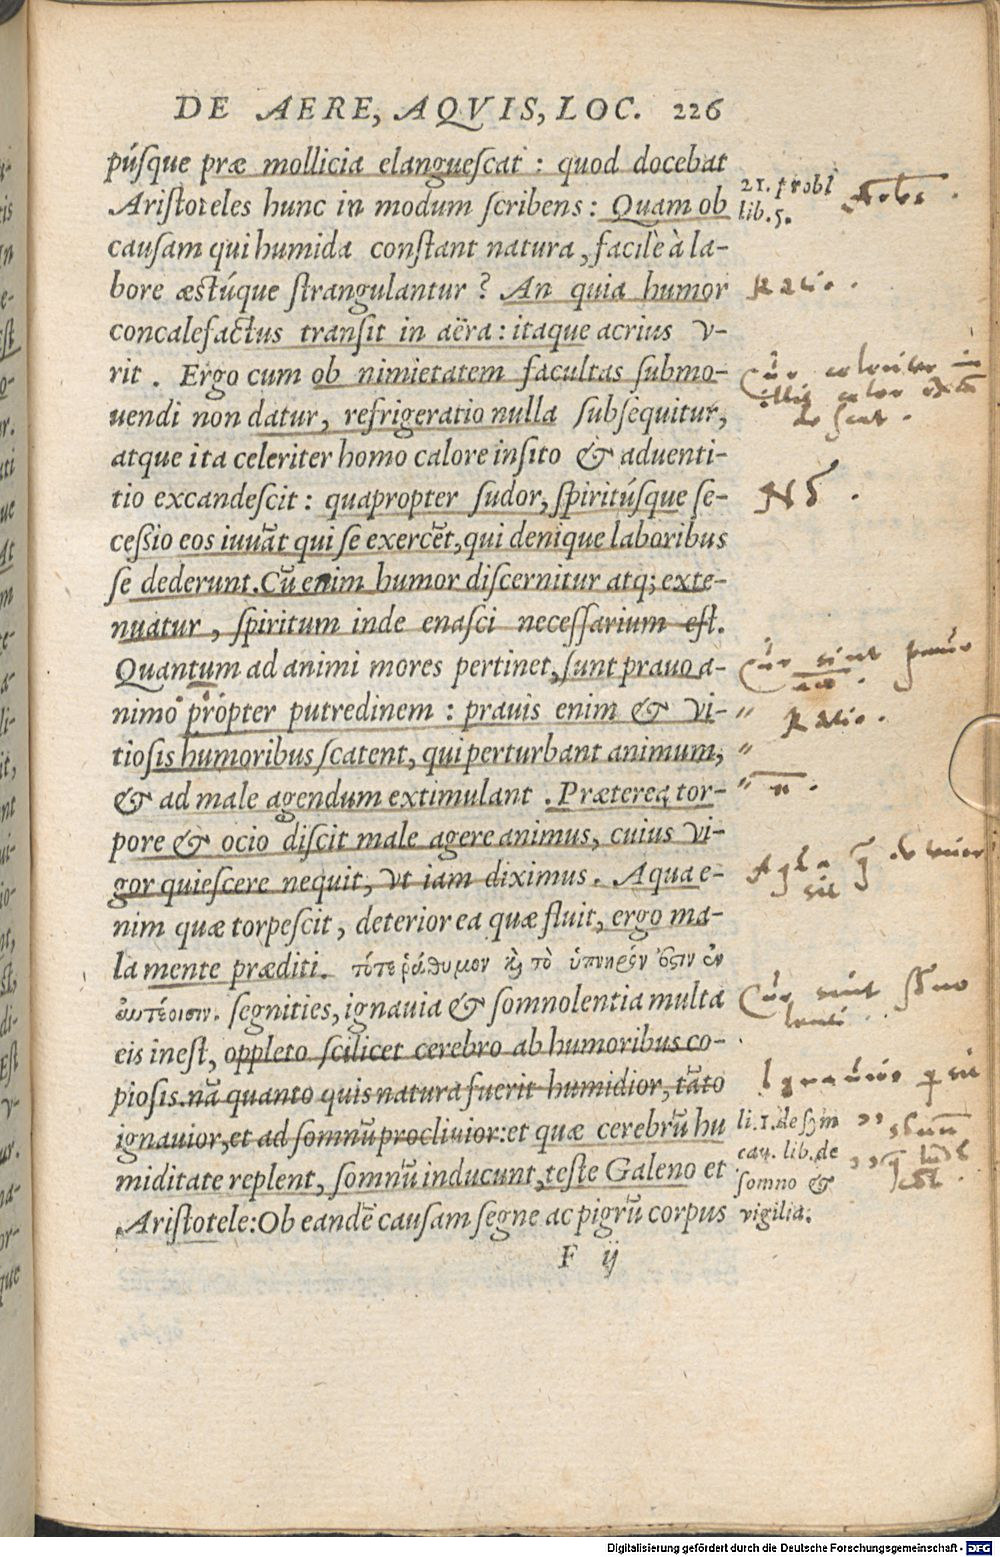 DE AERE, AQVIS, LOC. 226
púsque præ mollicia elanguescat : quod docebat
Aristoteles hunc in modum scribens : Quam ob
causam qui humida constant natura, facilè à la-
bore æstúque strangulantur ? An quia humor
concalefactus transit in aëra : itaque acrius v-
rit . Ergo cum ob nimietatem facultas submo-
uendi non datur, refrigeratio nulla subsequitur,
atque ita celeriter homo calore insito & aduenti-
tio excandescit : quapropter sudor, spiritúsque se-
cessio eos iuuāt qui se exercēt, qui denique laboribus
se dederunt. Cū enim humor discernitur atq; exte-
nuatur, spiritum inde enasci necessarium est.
Quantum ad animi mores pertinet, sunt prauo a-
nimo propter putredinem : prauis enim & vi-
tiosis humoribus scatent, qui perturbant animum,
& ad male agendum extimulant . Præterea tor-
pore & ocio discit male agere animus, cuius vi-
gor quiescere nequit, vt iam diximus. Aqua e-
nim quæ torpescit, deterior ea quæ fluit, ergo ma-
la mente præditi. τότε ῥάθυμον κὴ τὸ ὑπνηρὸν ὅσιν ἐν
αυτέοισιν. segnities, ignauia & somnolentia multa
eis inest, oppleto scilicet cerebro ab humoribus co-
piosis. nā quanto quis natura fuerit humidior, tāto
ignauior, et ad somnū procliuior: et quæ cerebrū hu
miditate replent, somnū inducunt, teste Galeno et
Aristotele: Ob eandē causam segne ac pigrū corpus
F ij
21. probl
lib. 5.
Ratio .
Cur celeriter in
illis calor
Cur sint prauo
Ratio .
Cur sint somno
lenti
li. 1. de sym
cau. lib. de
somno &
vigilia:
Digitalisierung gefördert durch die Deutsche Forschungsgemeinschaft - DFG